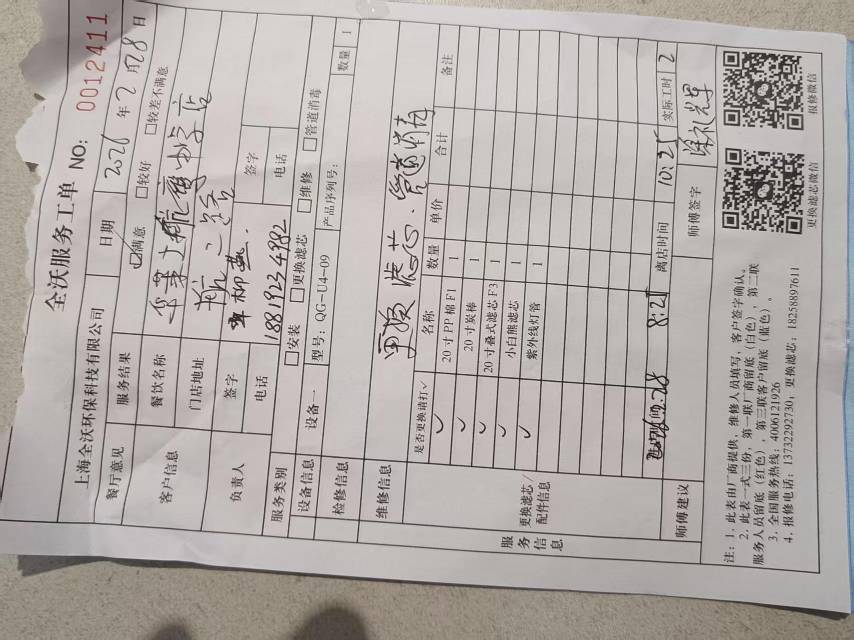 全沃服务工单 NO: 0012411
上海全沃环保科技有限公司 日期 2026 年 2 月 28 日
餐厅意见 服务结果 ☑满意 □较好 □较差不满意
客户信息 餐饮名称
门店地址
负责人 签字 签字
电话 18819234982 电话
服务类别 □安装 □更换滤芯 □维修 □管道消毒
设备信息 设备一 型号: QG-U4-09 产品序列号: 数量 1
检修信息
维修信息 更换滤芯、管道消毒
服务信息 更换滤芯/配件信息 是否更换请打✓ 名称 数量 单价 合计 备注
✓ 20寸PP棉F1 1
✓ 20寸炭棒 1
✓ 20寸叠式滤芯F3 1
✓ 小白熊滤芯 1
✓ 紫外线灯管 1
8:25 离店时间 10:25 实际工时 2
师傅建议 师傅签字
注: 1. 此表由厂商提供, 维修人员填写, 客户签字确认。
2. 此表一式三份, 第一联厂商留底(白色), 第二联
服务人员留底(红色), 第三联客户留底(蓝色)。
3. 全国服务热线: 4006121926
4. 报修电话: 13732292730; 更换滤芯: 18258897611
更换滤芯微信 报修微信